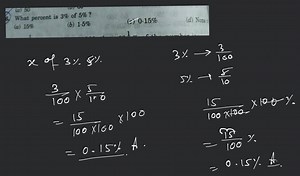 What percent is 3% of 5% ?
(a) 15%
(b) 1·5%
(c) 0·15%
(d) None
x of 3% 8%
3/100 × 5/100
= 15/100×100 × 100
= 0·15% A.
3% → 3/100
5% → 5/10
15/100×100 × 100 %
= 15/100 %
= 0·15% A.